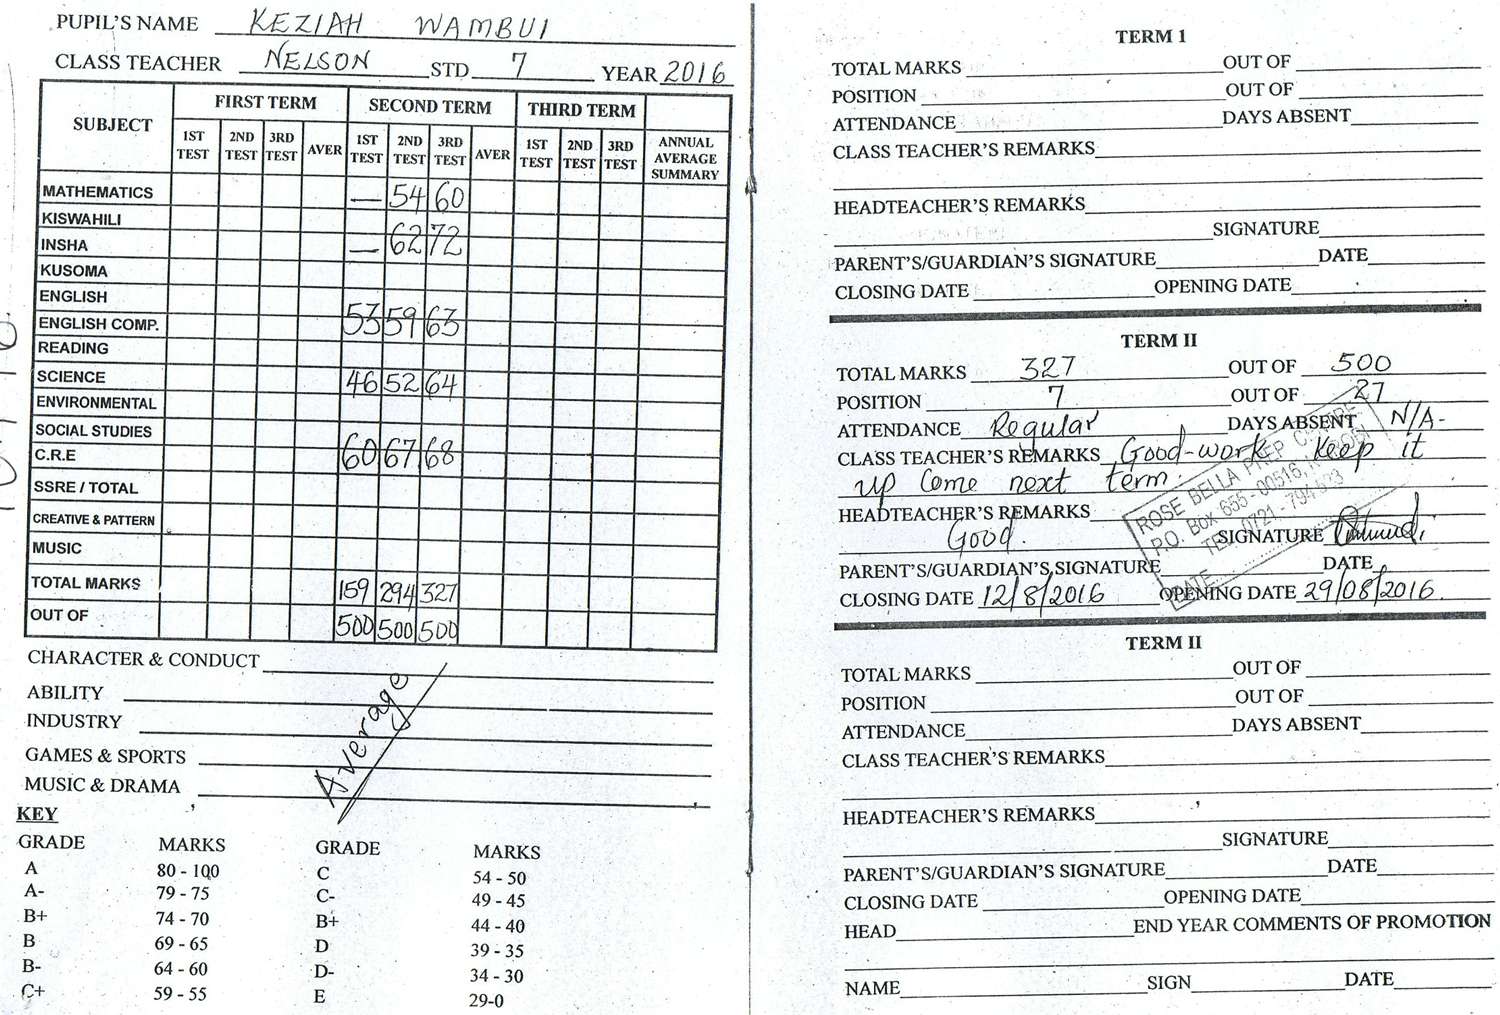 PUPIL'S NAME KEZIAH WAMBUI
CLASS TEACHER NELSON STD 7 YEAR 2016
SUBJECT FIRST TERM SECOND TERM THIRD TERM
1ST TEST 2ND TEST 3RD TEST AVER 1ST TEST 2ND TEST 3RD TEST AVER 1ST TEST 2ND TEST 3RD TEST ANNUAL AVERAGE SUMMARY
MATHEMATICS — 54 60
KISWAHILI
INSHA — 62 72
KUSOMA
ENGLISH
ENGLISH COMP. 53 59 63
READING
SCIENCE 46 52 64
ENVIRONMENTAL
SOCIAL STUDIES
C.R.E 60 67 68
SSRE / TOTAL
CREATIVE & PATTERN
MUSIC
TOTAL MARKS 159 294 327
OUT OF 500 500 500
CHARACTER & CONDUCT
ABILITY
INDUSTRY
GAMES & SPORTS
MUSIC & DRAMA
Average
KEY
GRADE MARKS GRADE MARKS
A 80 - 100 C 54 - 50
A- 79 - 75 C- 49 - 45
B+ 74 - 70 B+ 44 - 40
B 69 - 65 D 39 - 35
B- 64 - 60 D- 34 - 30
C+ 59 - 55 E 29-0
TERM 1
TOTAL MARKS OUT OF
POSITION OUT OF
ATTENDANCE DAYS ABSENT
CLASS TEACHER'S REMARKS
HEADTEACHER'S REMARKS
SIGNATURE
PARENT'S/GUARDIAN'S SIGNATURE DATE
CLOSING DATE OPENING DATE
TERM II
TOTAL MARKS 327 OUT OF 500
POSITION 7 OUT OF 27
ATTENDANCE Regular DAYS ABSENT N/A-
CLASS TEACHER'S REMARKS Good-work keep it
up come next term.
HEADTEACHER'S REMARKS
Good. SIGNATURE
PARENT'S/GUARDIAN'S SIGNATURE DATE
CLOSING DATE 12/8/2016 OPENING DATE 29/08/2016.
ROSE BELLA PREP CENTRE
P.O. BOX 655 - 00516, NAIROBI
TEL: 0721 - 794
DATE
TERM II
TOTAL MARKS OUT OF
POSITION OUT OF
ATTENDANCE DAYS ABSENT
CLASS TEACHER'S REMARKS
HEADTEACHER'S REMARKS
SIGNATURE
PARENT'S/GUARDIAN'S SIGNATURE DATE
CLOSING DATE OPENING DATE
HEAD END YEAR COMMENTS OF PROMOTION
NAME SIGN DATE